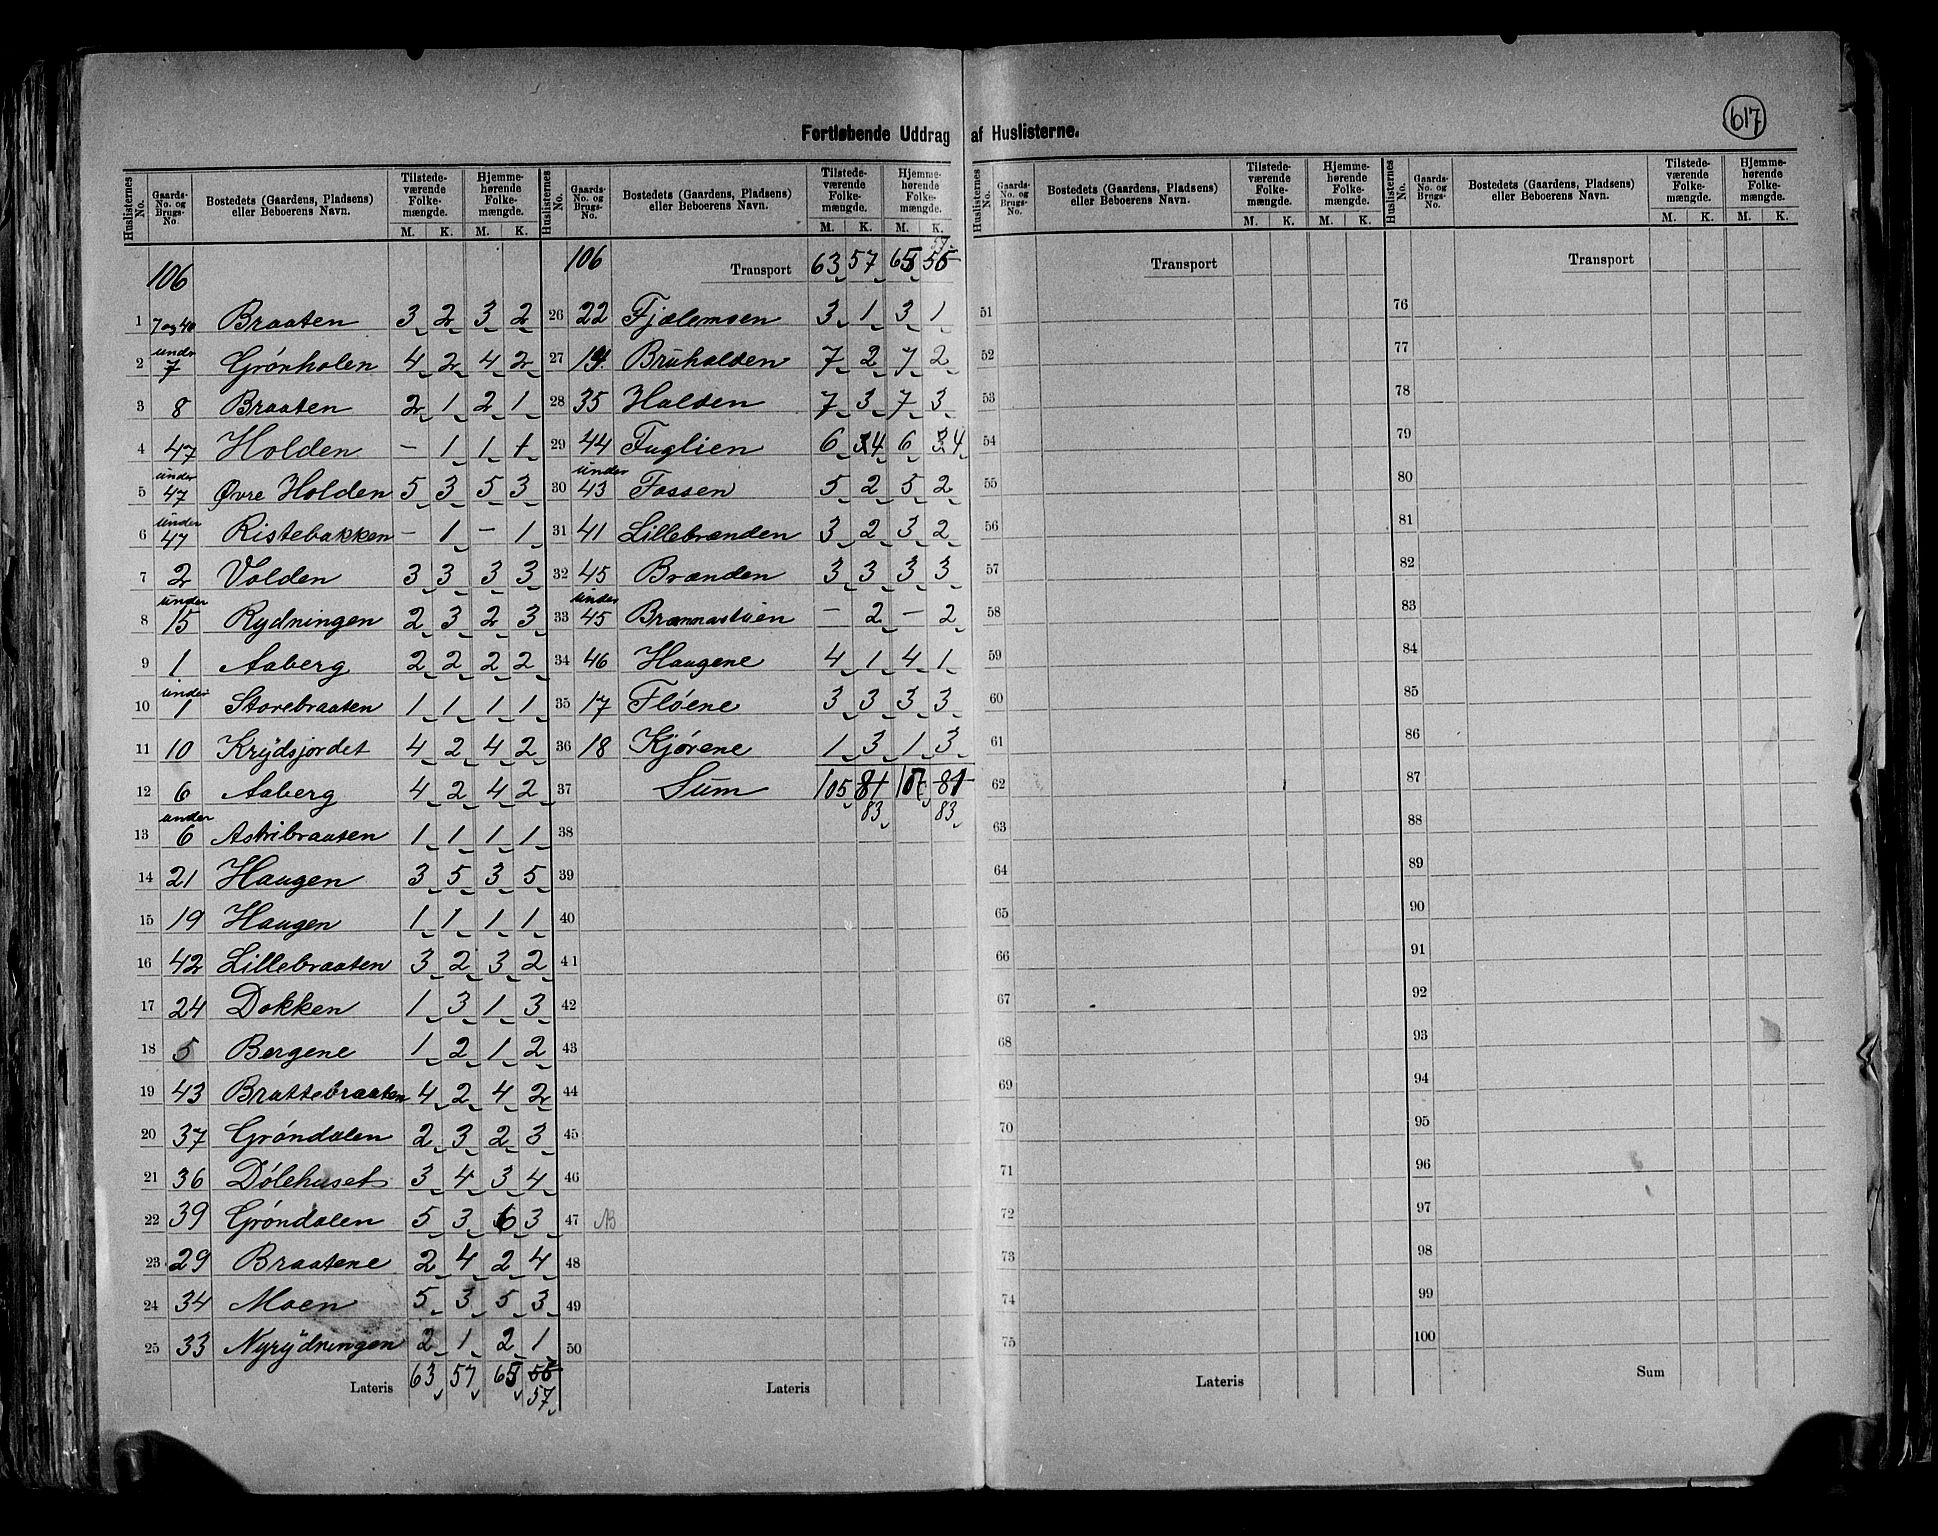 617
Fortløbende Uddrag af Huslisterne.
Huslisternes No. Gaards-No. og Brugs-No. Bostedets (Gaardens, Pladsens) eller Beboerens Navn. Tilstedeværende Folkemængde. M. K. Hjemmehørende Folkemængde. M. K.
106
1 7 og 40 Braaten 3 2 3 2
2 under 7 Grønholen 4 2 4 2
3 8 Braaten 2 1 2 1
4 47 Holden – 1 1 1
5 under 47 Øvre Holden 5 3 5 3
6 under 47 Ristebakken – 1 – 1
7 2 Volden 3 3 3 3
8 under 15 Rydningen 2 3 2 3
9 1 Aaberg 2 2 2 2
10 under 1 Storebraaten 1 1 1 1
11 10 Krydsjordet 4 2 4 2
12 6 Aaberg 4 2 4 2
13 under 6 Astribraaten 1 1 1 1
14 21 Haugen 3 5 3 5
15 19 Haugen 1 1 1 1
16 42 Lillebraaten 3 2 3 2
17 24 Dokken 1 3 1 3
18 5 Bergene 1 2 1 2
19 43 Brattebraaten 4 2 4 2
20 37 Grøndalen 2 3 2 3
21 36 Dølehuset 3 4 3 4
22 39 Grøndalen 5 3 6 3
23 29 Braatene 2 4 2 4
24 34 Moen 5 3 5 3
25 33 Nyrydningen 2 1 2 1
Lateris 63 57 65 56
57
Huslisternes No. Gaards-No. og Brugs-No. Bostedets (Gaardens, Pladsens) eller Beboerens Navn. Tilstedeværende Folkemængde. M. K. Hjemmehørende Folkemængde. M. K.
57
106 Transport 63 57 65 56
26 22 Fjælemoen 3 1 3 1
27 14. Bruhalden 7 2 7 2
28 35 Halden 7 3 7 3
29 44 Fuglien 6 3 4 6 3 4
30 under 43 Fossen 5 2 5 2
31 41 Lillebrænden 3 2 3 2
32 45 Brænden 3 3 3 3
33 under 45 Brænnastuen – 2 – 2
34 46 Haugene 4 1 4 1
35 17 Fløene 3 3 3 3
36 18 Kjørene 1 3 1 3
37 Sum 105 81 107 81
83 83
38
39
40
41
42
43
44
45
46
47 AB
48
49
50
Lateris
Huslisternes No. Gaards-No. og Brugs-No. Bostedets (Gaardens, Pladsens) eller Beboerens Navn. Tilstedeværende Folkemængde. M. K. Hjemmehørende Folkemængde. M. K.
Transport
51
52
53
54
55
56
57
58
59
60
61
62
63
64
65
66
67
68
69
70
71
72
73
74
75
Lateris
Huslisternes No. Gaards-No. og Brugs-No. Bostedets (Gaardens, Pladsens) eller Beboerens Navn. Tilstedeværende Folkemængde. M. K. Hjemmehørende Folkemængde. M. K.
Transport
76
77
78
79
80
81
82
83
84
85
86
87
88
89
90
91
92
93
94
95
96
97
98
99
100
Sum